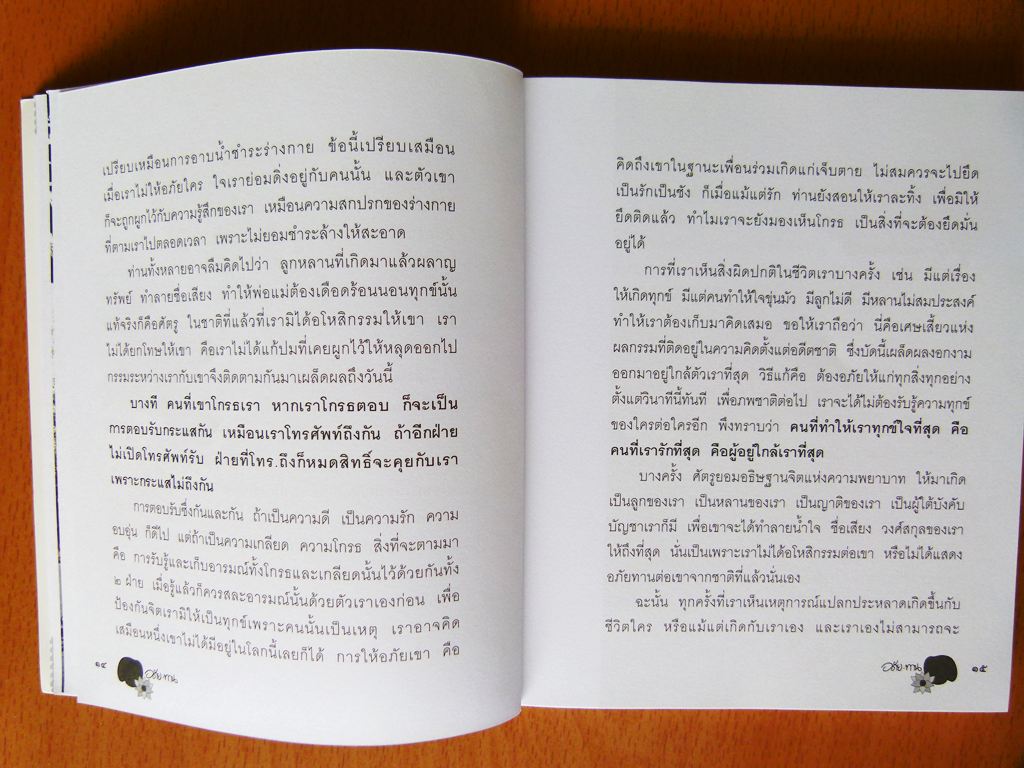 เปรียบเหมือนการอาบน้ำชำระร่างกาย ข้อนี้เปรียบเสมือน
เมื่อเราไม่ให้อภัยใคร ใจเราย่อมดิ่งอยู่กับคนนั้น และตัวเขา
ก็จะถูกผูกไว้กับความรู้สึกของเรา เหมือนความสกปรกของร่างกาย
ที่ตามเราไปตลอดเวลา เพราะไม่ยอมชำระล้างให้สะอาด
ท่านทั้งหลายอาจลืมคิดไปว่า ลูกหลานที่เกิดมาแล้วผลาญ
ทรัพย์ ทำลายชื่อเสียง ทำให้พ่อแม่ต้องเดือดร้อนนอนทุกข์นั้น
แท้จริงก็คือศัตรู ในชาติที่แล้วที่เรามิได้อโหสิกรรมให้เขา เรา
ไม่ได้ยกโทษให้เขา คือเราไม่ได้แก้ปมที่เคยผูกไว้ให้หลุดออกไป
กรรมระหว่างเรากับเขาจึงติดตามกันมาเผล็ดผลถึงวันนี้
บางที คนที่เขาโกรธเรา หากเราโกรธตอบ ก็จะเป็น
การตอบรับกระแสกัน เหมือนเราโทรศัพท์ถึงกัน ถ้าอีกฝ่าย
ไม่เปิดโทรศัพท์รับ ฝ่ายที่โทร.ถึงก็หมดสิทธิ์จะคุยกับเรา
เพราะกระแสไม่ถึงกัน
การตอบรับซึ่งกันและกัน ถ้าเป็นความดี เป็นความรัก ความ
อบอุ่น ก็ดีไป แต่ถ้าเป็นความเกลียด ความโกรธ สิ่งที่จะตามมา
คือ การรับรู้และเก็บอารมณ์ทั้งโกรธและเกลียดนั้นไว้ด้วยกันทั้ง
๒ ฝ่าย เมื่อรู้แล้วก็ควรสละอารมณ์นั้นด้วยตัวเราเองก่อน เพื่อ
ป้องกันจิตเรามิให้เป็นทุกข์เพราะคนนั้นเป็นเหตุ เราอาจคิด
เสมือนหนึ่งเขาไม่ได้มีอยู่ในโลกนี้เลยก็ได้ การให้อภัยเขา คือ
๑๔ อภัยทาน
คิดถึงเขาในฐานะเพื่อนร่วมเกิดแก่เจ็บตาย ไม่สมควรจะไปยึด
เป็นรักเป็นชัง ก็เมื่อแม้แต่รัก ท่านยังสอนให้เราละทิ้ง เพื่อมิให้
ยึดติดแล้ว ทำไมเราจะยังมองเห็นโกรธ เป็นสิ่งที่จะต้องยึดมั่น
อยู่ได้
การที่เราเห็นสิ่งผิดปกติในชีวิตเราบางครั้ง เช่น มีแต่เรื่อง
ให้เกิดทุกข์ มีแต่คนทำให้ใจขุ่นมัว มีลูกไม่ดี มีหลานไม่สมประสงค์
ทำให้เราต้องเก็บมาคิดเสมอ ขอให้เราถือว่า นี่คือเศษเสี้ยวแห่ง
ผลกรรมที่ติดอยู่ในความคิดตั้งแต่อดีตชาติ ซึ่งบัดนี้เผล็ดผลงอกงาม
ออกมาอยู่ใกล้ตัวเราที่สุด วิธีแก้คือ ต้องอภัยให้แก่ทุกสิ่งทุกอย่าง
ตั้งแต่วินาทีนี้ทันที เพื่อภพชาติต่อไป เราจะได้ไม่ต้องรับรู้ความทุกข์
ของใครต่อใครอีก พึงทราบว่า คนที่ทำให้เราทุกข์ใจที่สุด คือ
คนที่เรารักที่สุด คือผู้อยู่ใกล้เราที่สุด
บางครั้ง ศัตรูยอมอธิษฐานจิตแห่งความพยาบาท ให้มาเกิด
เป็นลูกของเรา เป็นหลานของเรา เป็นญาติของเรา เป็นผู้ใต้บังคับ
บัญชาเราก็มี เพื่อเขาจะได้ทำลายน้ำใจ ชื่อเสียง วงศ์สกุลของเรา
ให้ถึงที่สุด นั่นเป็นเพราะเราไม่ได้อโหสิกรรมต่อเขา หรือไม่ได้แสดง
อภัยทานต่อเขาจากชาติที่แล้วนั่นเอง
ฉะนั้น ทุกครั้งที่เราเห็นเหตุการณ์แปลกประหลาดเกิดขึ้นกับ
ชีวิตใคร หรือแม้แต่เกิดกับเราเอง และเราเองไม่สามารถจะ
อภัยทาน ๑๕